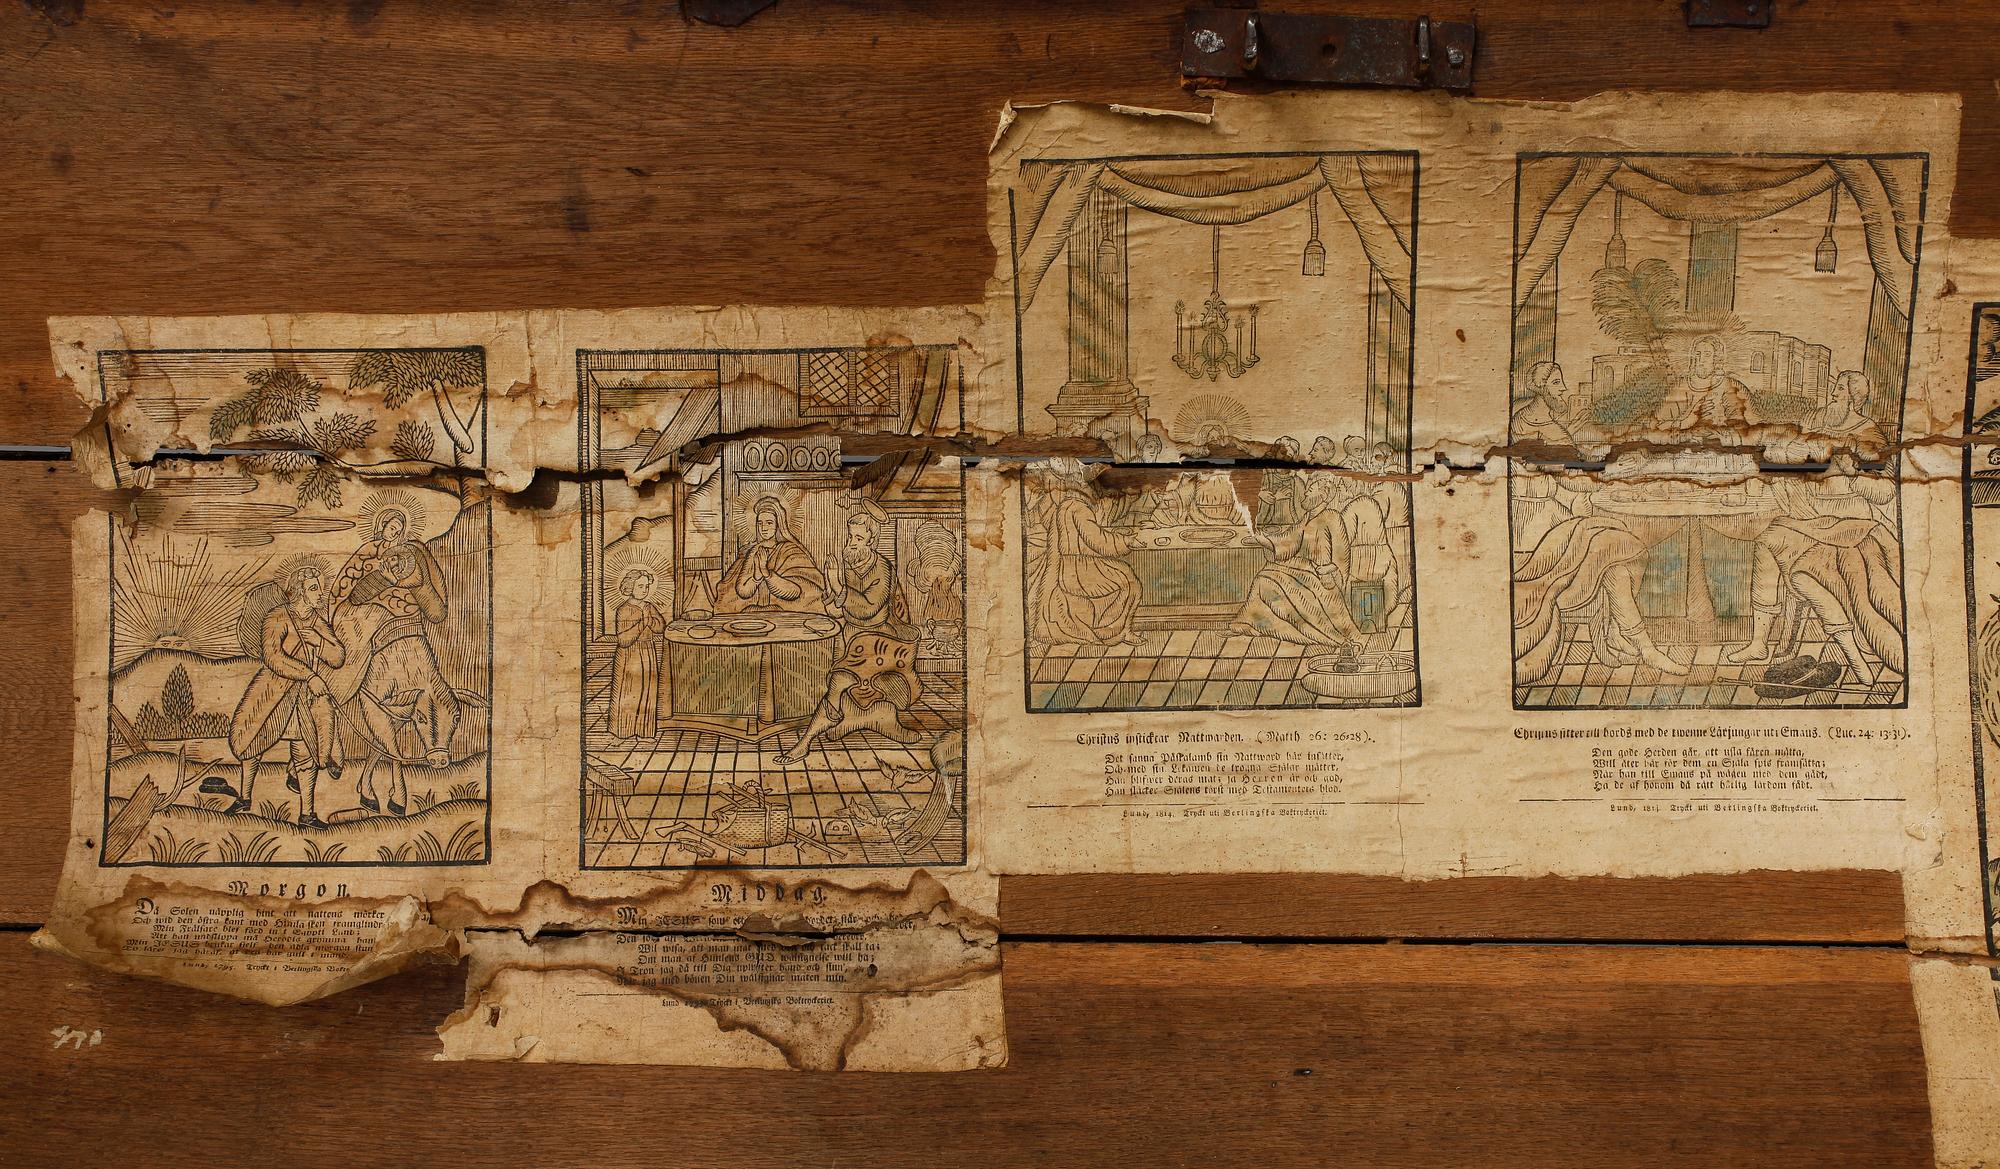 Morgon.
Då Solen näpplig hint att nattens mörker
Och wid den östra kant med
Min Frälsare blef förd in i Egypti Land;
Att han undslippa må Herodis grymma hand
Min JESUS
Lund, 1795. Tryckt i Berlingska
Middag.
Min JESUS som
Den
Wil wisa, att man utat och tack skall ta;
Om man af Himlens GUD wälsignelse will ha;
I Tron jag då till Dig uplyfter hand och sinn',
När jag med bönen Din wälsignar maten min.
Lund Tryckt i Berlingska Boktryckeriet.
Christus insticktar Nattwarden. (Matth 26: 26-28).
Det sanna Påskalamb sin Nattword här insätter,
Och med sin Lekamen de trogna Själar mätter,
Han blifwer deras mat; ja Herren är och god,
Han släcker Själens törst med Testamentets blod.
Lund, 1814. Tryckt uti Berlingska Boktryckeriet.
Christus sitter till bords med de twenne Lärjungar uti Emaus. (Luc. 24: 13-31).
Den gode Herden går, att usla fåren mätta,
Will åter här för dem en Själa spis framsätta;
När han till Emaus på wägen med dem gådt,
Ha de af honom då rätt härlig lärdom fådt.
Lund, 1814. Tryckt uti Berlingska Boktryckeriet.